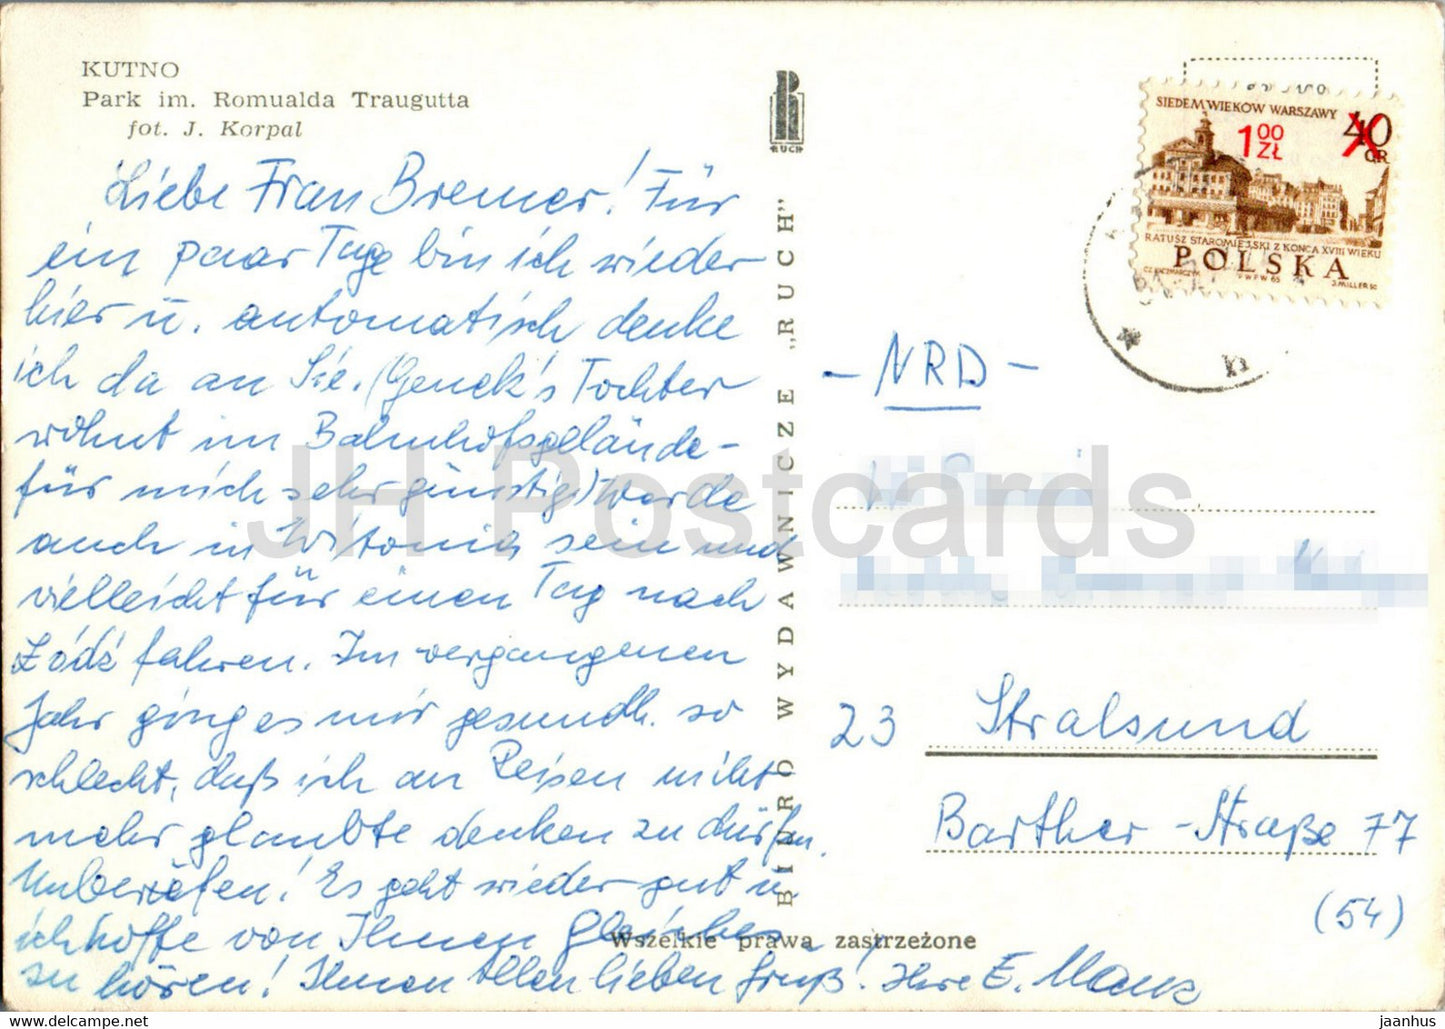 KUTNO
Park im. Romualda Traugutta
fot. J. Korpal
RUCH
Liebe Frau Bremer! Für
ein paar Tage bin ich wieder
hier u. automatisch denke
ich da an Sie. (Genek's Tochter
wohnt im Bahnhofsgelände-
für mich sehr günstig) Werde
auch in Witonia sein und
vielleicht für einen Tag nach
Łódź fahren. Im vergangenen
Jahr ging es mir gesundh. so
schlecht, daß ich an Reisen nicht
mehr glaubte denken zu dürfen.
Unberufen! Es geht wieder gut u.
ich hoffe von Ihnen Gleiches
zu hören! Ihnen Allen lieben Gruß! Ihre E.
BIURO WYDAWNICZE „RUCH"
Wszelkie prawa zastrzeżone
SIEDEM WIEKÓW WARSZAWY
1 00 ZŁ
40 GR
RATUSZ STAROMIEJSKI Z KOŃCA XVIII WIEKU
POLSKA
CZ. KACZMARCZYK P.W.P.W. 65 J. MILLER SC.
- NRD -
23 Stralsund
Barther-Straße 77
(54)
JH Postcards
jaanhus